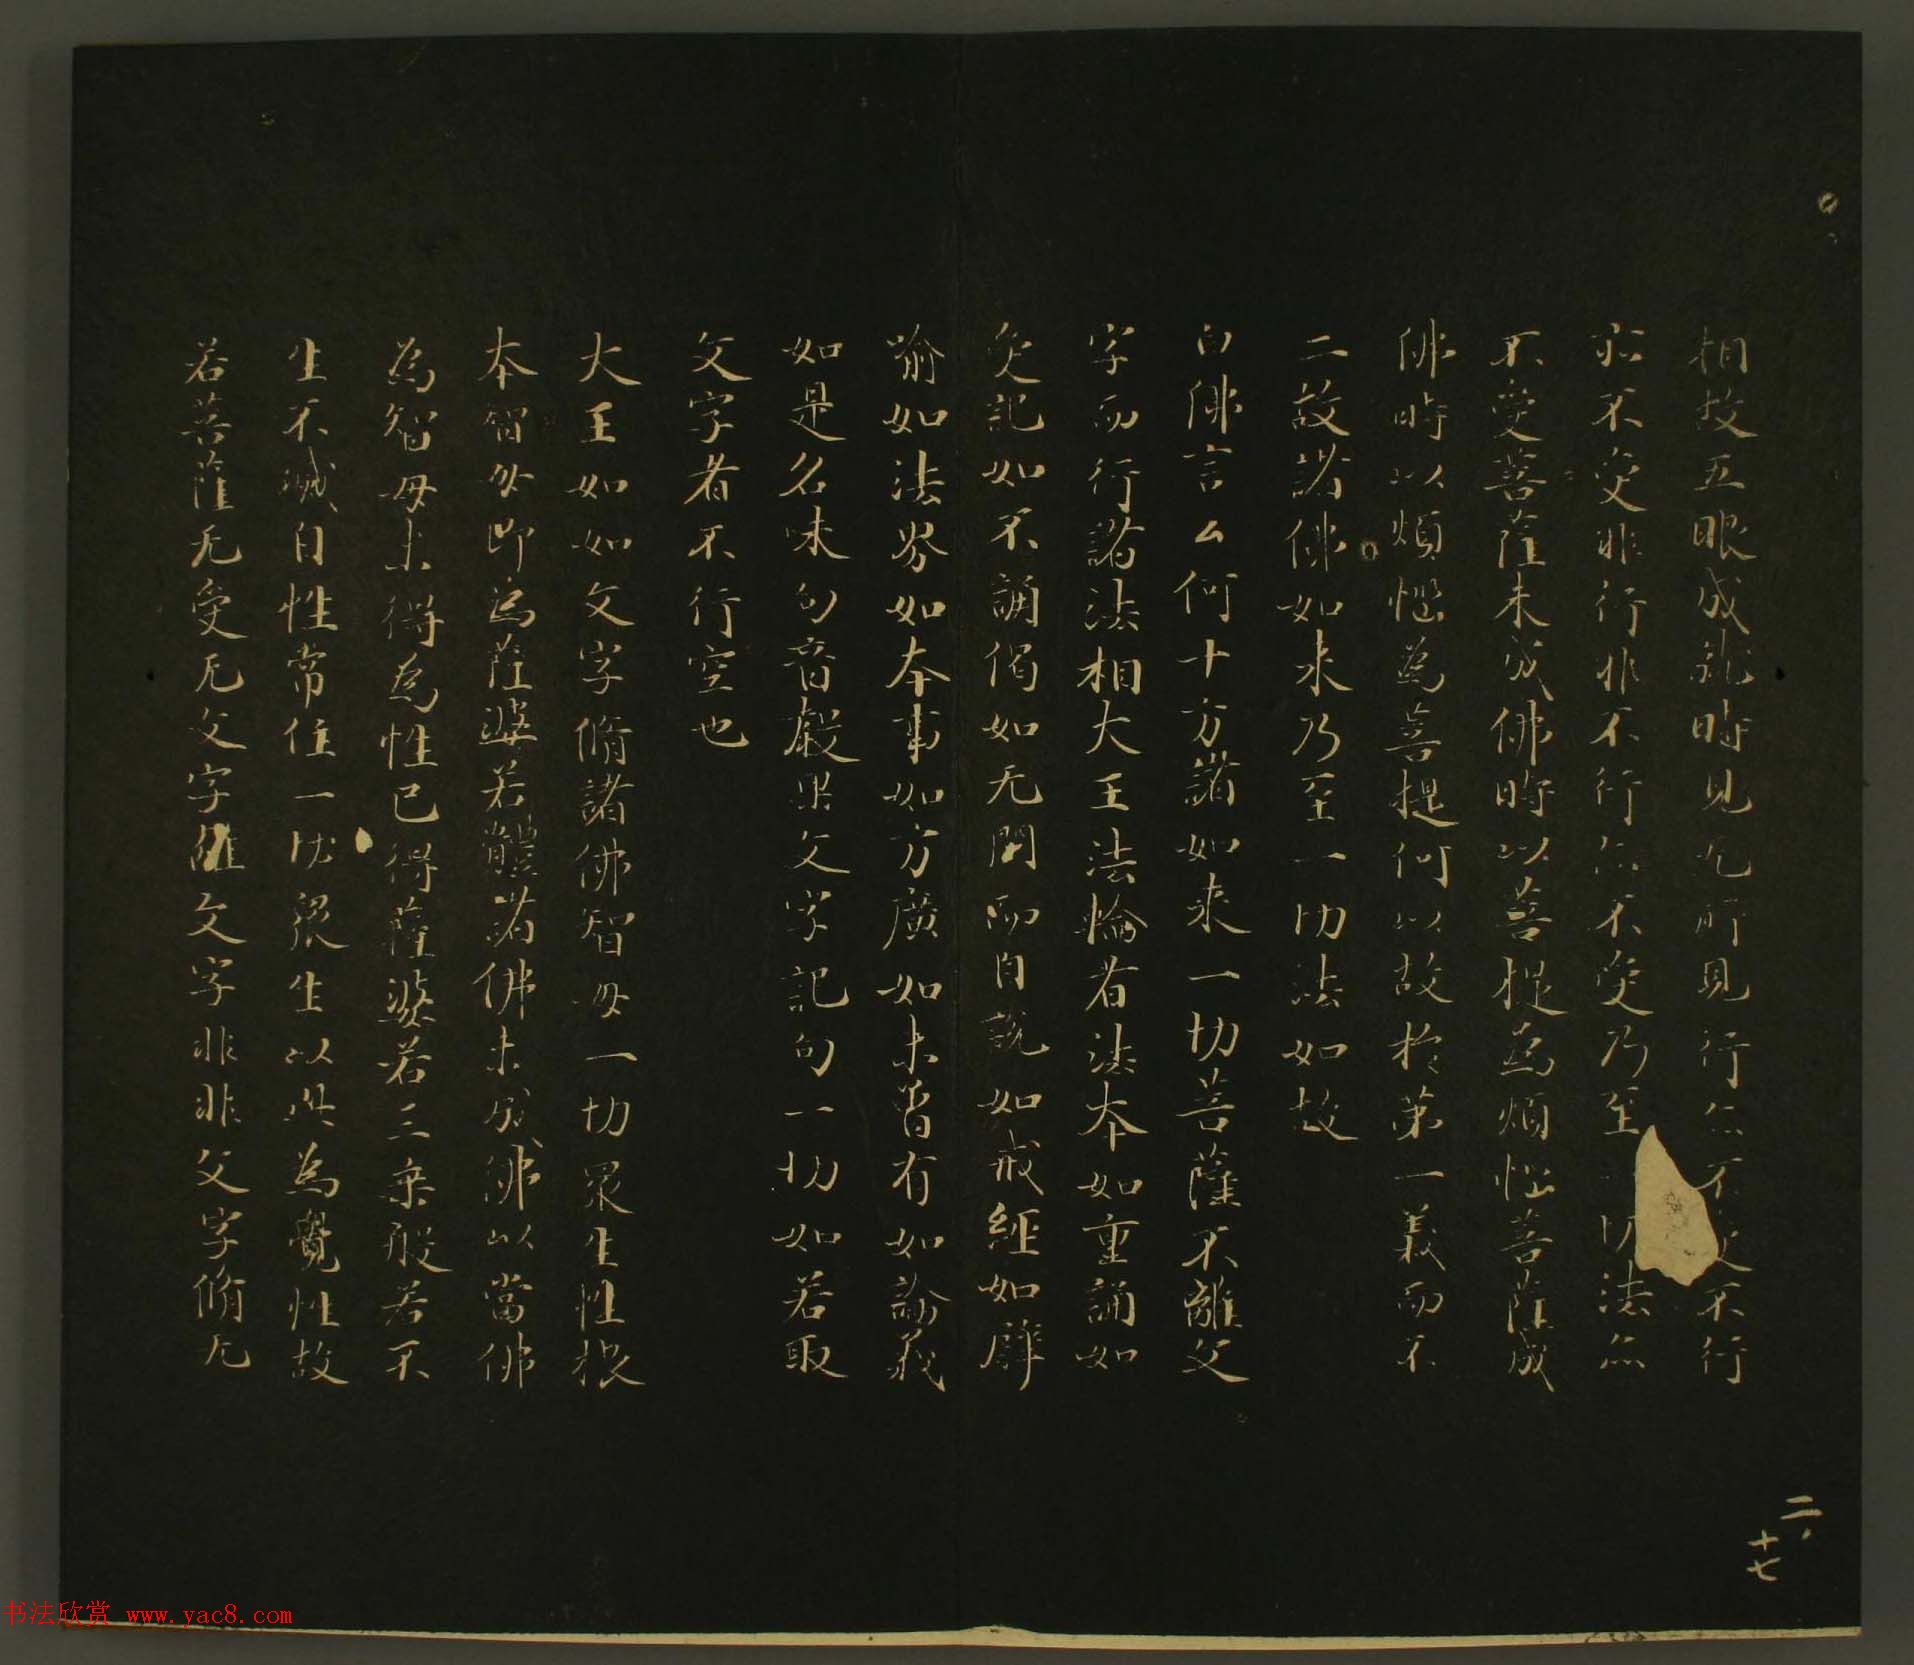 相故五眼成就時見无所見行亦不受不行
亦不受非行非不行亦不受乃至一切法亦
不受菩薩未成佛時以菩提為煩惱菩薩成
佛時以煩惱為菩提何以故於第一義而不
二故諸佛如來乃至一切法如故
白佛言云何十方諸如來一切菩薩不離文
字而行諸法相大王法輪者法本如重誦如
受記如不誦偈如无問而自說如戒經如譬
喻如法界如本事如方廣如未曾有如論義
如是名味句音聲果文字記句一切如若取
文字者不行空也
大王如如文字脩諸佛智母一切眾生性根
本智母即為薩婆若體諸佛未成佛以當佛
為智母未得為性已得薩婆若三乘般若不
生不滅自性常住一切眾生以此為覺性故
若菩薩无受无文字離文字非非文字脩无
二、十七
书法欣赏 www.yac8.com